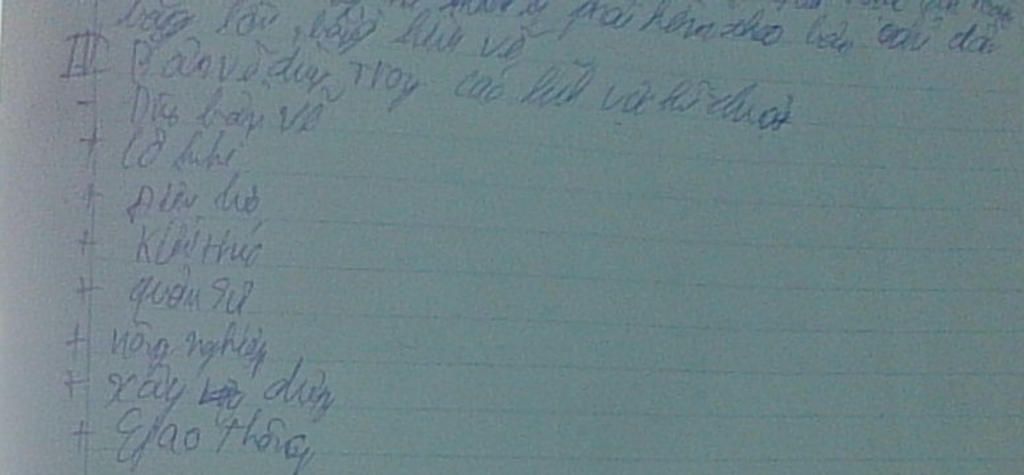 phải kèm theo bản
bằng lời, bằng hình vẽ
III Bản vẽ dùng trong các lĩnh vực kĩ thuật
- Dùng bản vẽ
+ Cơ khí
+ Điện lực
+ Kiến trúc
+ quân sự
+ nông nghiệp
+ xây dựng
+ Giao thông